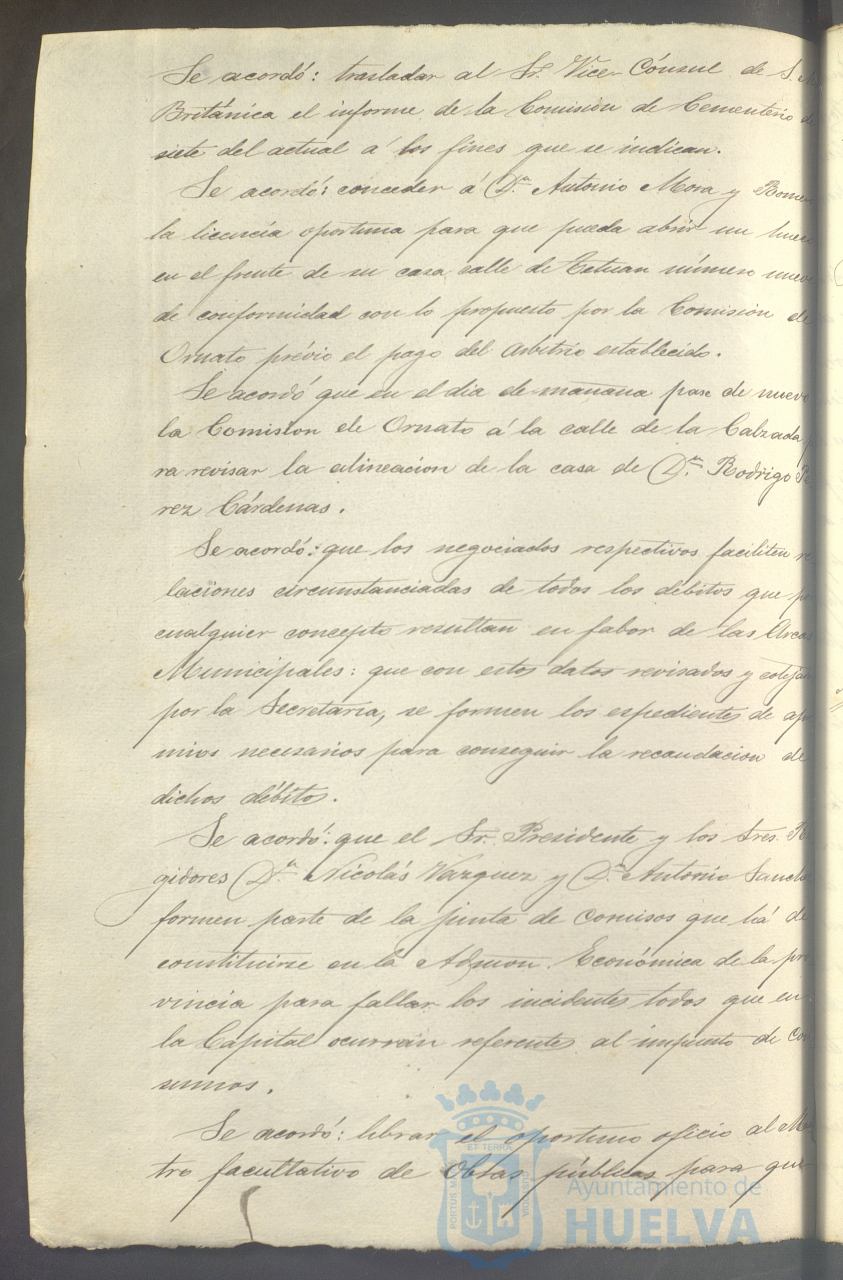 Se acordó: trasladar al Sr. Vice-Cónsul de S. M.
Británica el informe de la Comisión de Cementerio de
siete del actual á los fines que se indican.
Se acordó: conceder á Dn. Antonio Mora y Rome
la licencia oportuna para que pueda abrir un hueco
en el frente de su casa calle de Tetuan número nueve
de conformidad con lo propuesto por la Comisión de
Ornato prévio el pago del arbitrio establecido.
Se acordó que en el dia de mañana pase de nuevo
la Comision de Ornato á la calle de la Calzada p
ra revisar la alineacion de la casa de Dn. Rodrigo Pe
rez Cárdenas.
Se acordó: que los negociados respectivos faciliten re
laciones circunstanciadas de todos los débitos que po
cualquier concepto resultan en fabor de las Arcas
Municipales: que con estos datos revisados y cotejad
por la Secretaría, se formen los espedientes de ap
mios necesarios para conseguir la recaudacion de
dichos débitos.
Se acordó: que el Sr. Presidente y los Sres. R
gidores Dn. Nicolás Vazquez y Dn. Antonio Sanche
formen parte de la junta de comisos que há de
constituirse en la Admon. Económica de la pro
vincia para fallar los incidentes todos que en
la Capital ocurran referentes al impuesto de con
sumos.
Se acordó: librar el oportuno oficio al Maes
tro facultativo de Obras públicas para que
ET TERRA
PORTUS MARIS
Ayuntamiento de
HUELVA